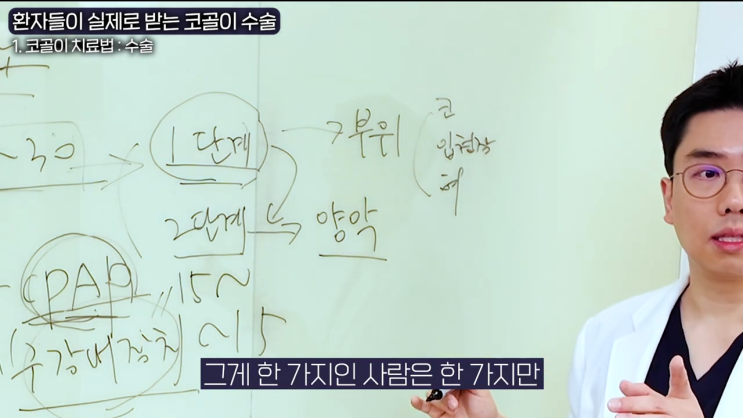 환자들이 실제로 받는 코골이 수술
1. 코골이 치료법 : 수술
~30
1 단계
부위
코
입천장
혀
2단계
양악
CPAP
15~
구강내장치
~15
그게 한 가지인 사람은 한 가지만